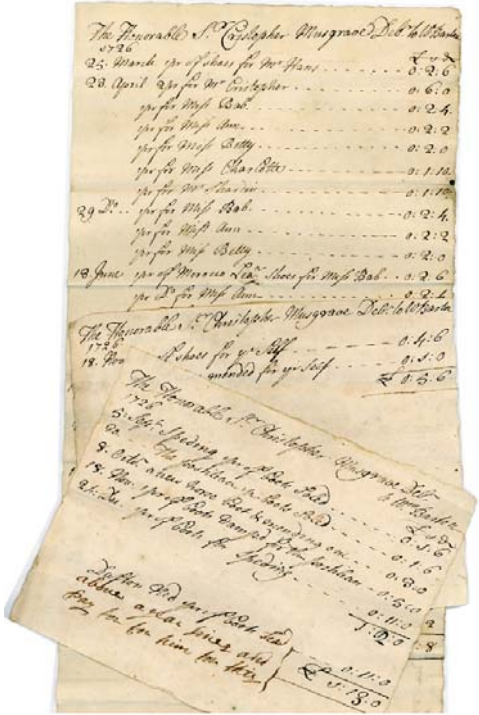 The Honorable Sr. Cristopher Musgrave Debr. to W Barton
1726 £ s d
25. March pr of shoes for Mr Hans 0: 2: 6
28. April 2 pr for Mr Cristopher 0: 6: 0
pr for Miss Bab. 0: 2: 4.
pr for Miss Ann. 0: 2: 2
pr for Miss Betty 0: 2: 0
pr for Miss Charlotte 0: 1: 10.
pr for Mr 0: 1: 10.
29 Do. pr for Miss Bab. 0: 2: 4.
pr for Miss Ann 0: 2: 2
pr for Miss Betty 0: 2: 0
18 June pr of Morocco Shoes for Miss Bab 0: 2: 6
pr Do for Miss Ann 0: 2: 4
The Honorable Sr. Christopher Musgrave Debr. to W Barton
1726
18. Nov of shoes for yr Self 0: 4: 6
mended for yr Self 0: 1: 0
£ 0: 5: 6
The Honorable Sr. Christopher Musgrave Debr.
1726 to Wm Barton
£ s d
5. Sept. pr of Boots 0: 1: 6
20. Boots 0: 1: 6
8. Octbr. a new 0: 3: 0
18. Nov. 1 pr of Boots for 0: 5: 0
24. Dec. pr of Boots for 0: 11: 0
1: 2: 0
pr of Boots
above a year since and 0: 11: 0
for him for this £ 1: 13: 0